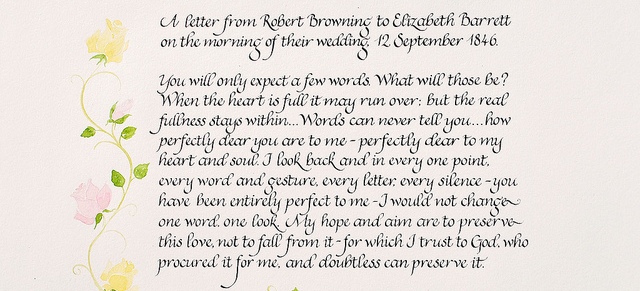 A letter from Robert Browning to Elizabeth Barrett
on the morning of their wedding, 12 September 1846.
You will only expect a few words. What will those be?
When the heart is full it may run over; but the real
fullness stays within... Words can never tell you... how
perfectly dear you are to me - perfectly dear to my
heart and soul. I look back and in every one point,
every word and gesture, every letter, every silence - you
have been entirely perfect to me - I would not change
one word, one look. My hope and aim are to preserve
this love, not to fall from it - for which I trust to God, who
procured it for me, and doubtless can preserve it.